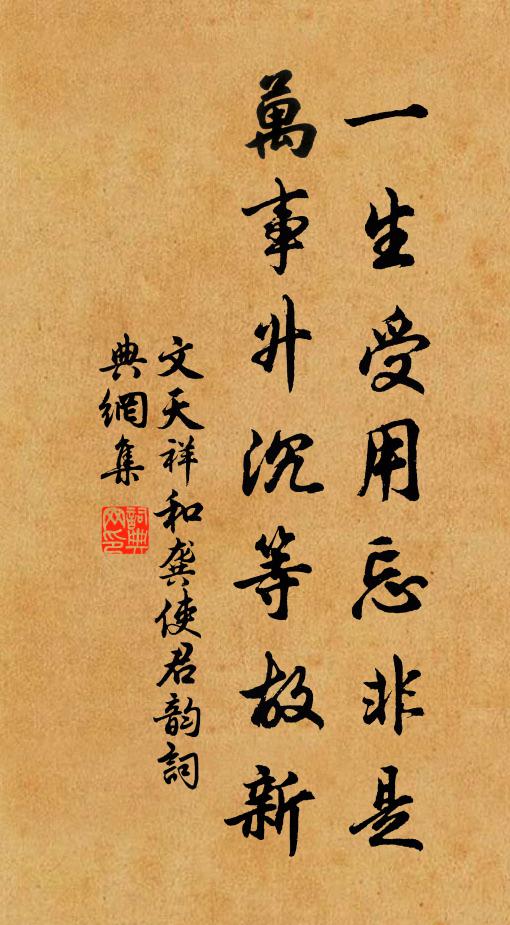 一生受用忘非是
萬事升沉等故新
文天祥和龚使君韵詞
典網集
詞典網印